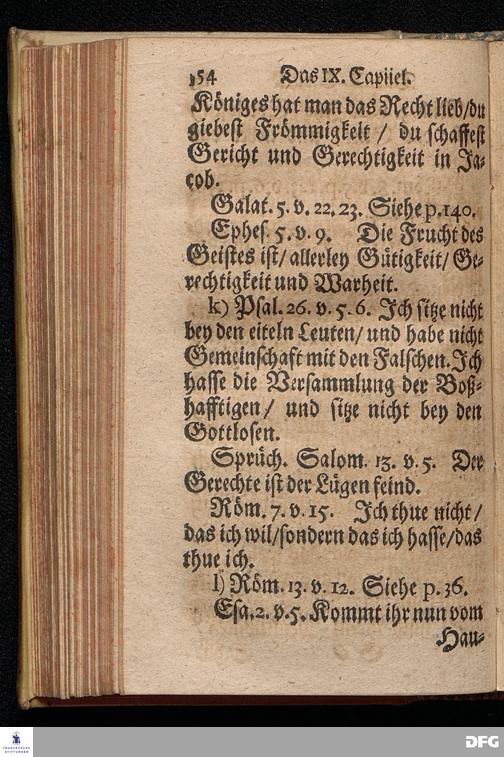 154 Das IX. Capitel.
Königes hat man das Recht lieb/du
giebest Frömmigkeit / du schaffest
Gericht und Gerechtigkeit in Ja-
cob.
Galat. 5. v. 22. 23. Siehe p. 140.
Ephes. 5. v. 9. Die Frucht des
Geistes ist/ allerley Gütigkeit/ Ge-
rechtigkeit und Warheit.
k) Psal. 26. v. 5. 6. Ich sitze nicht
bey den eiteln Leuten/ und habe nicht
Gemeinschaft mit den Falschen. Ich
hasse die Versammlung der Boß-
hafftigen/ und sitze nicht bey den
Gottlosen.
Sprüch. Salom. 13. v. 5. Der
Gerechte ist der Lügen feind.
Röm. 7. v. 15. Ich thue nicht/
das ich wil/sondern das ich hasse/das
thue ich.
l) Röm. 13. v. 12. Siehe p. 36.
Esa. 2. v. 5. Kommt ihr nun vom
Hau-
FRANCKESCHE
STIFTUNGEN
DFG